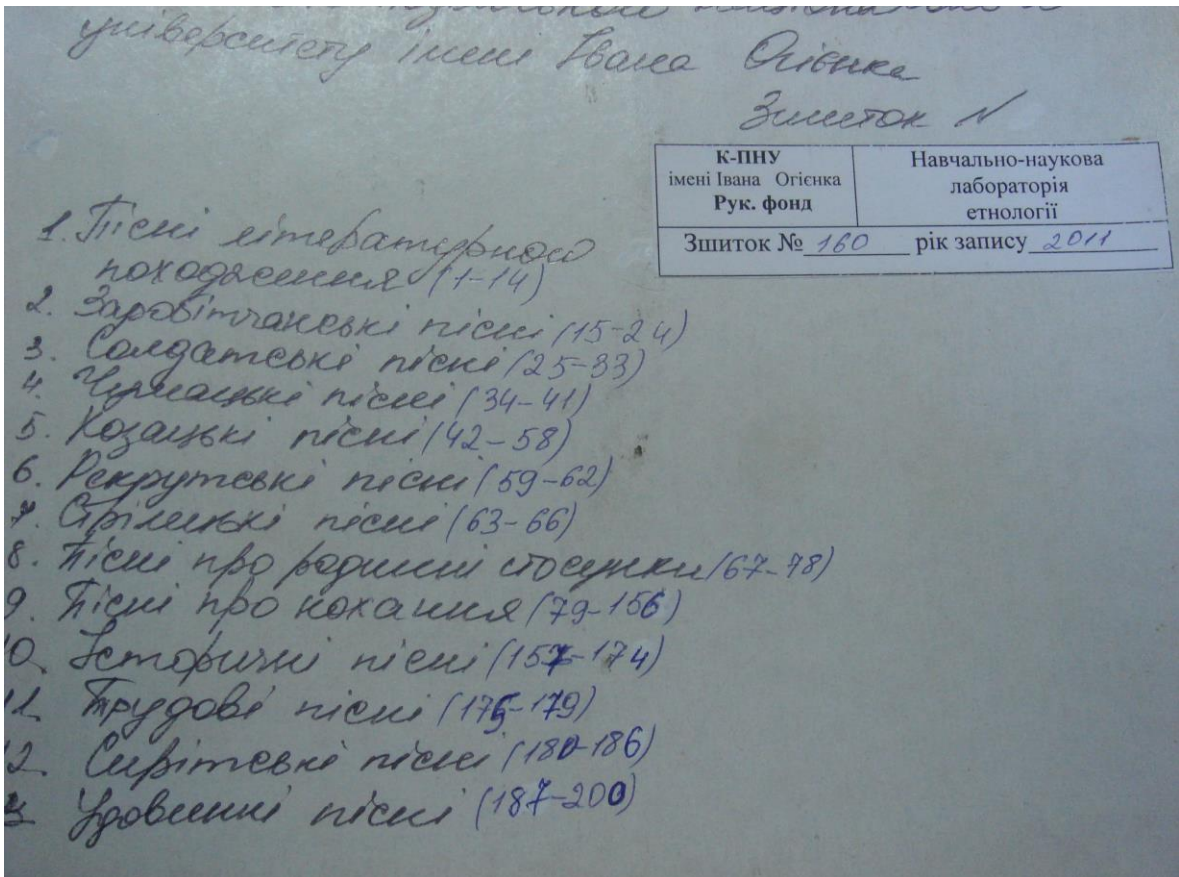 університету імені Івана Огієнка
Зшиток N
К-ПНУ
імені Івана Огієнка
Рук. фонд
Навчально-наукова
лабораторія
етнології
Зшиток № 160 рік запису 2011
1. Пісні літературного
походження (1-14)
2. Заробітчанські пісні (15-24)
3. Солдатські пісні (25-33)
4. Чумацькі пісні (34-41)
5. Козацькі пісні (42-58)
6. Рекрутські пісні (59-62)
7. Стрілецькі пісні (63-66)
8. Пісні про родинні стосунки (67-78)
9. Пісні про кохання (79-156)
10. Історичні пісні (157-174)
11. Трудові пісні (175-179)
12. Сирітські пісні (180-186)
Удовинні пісні (187-200)